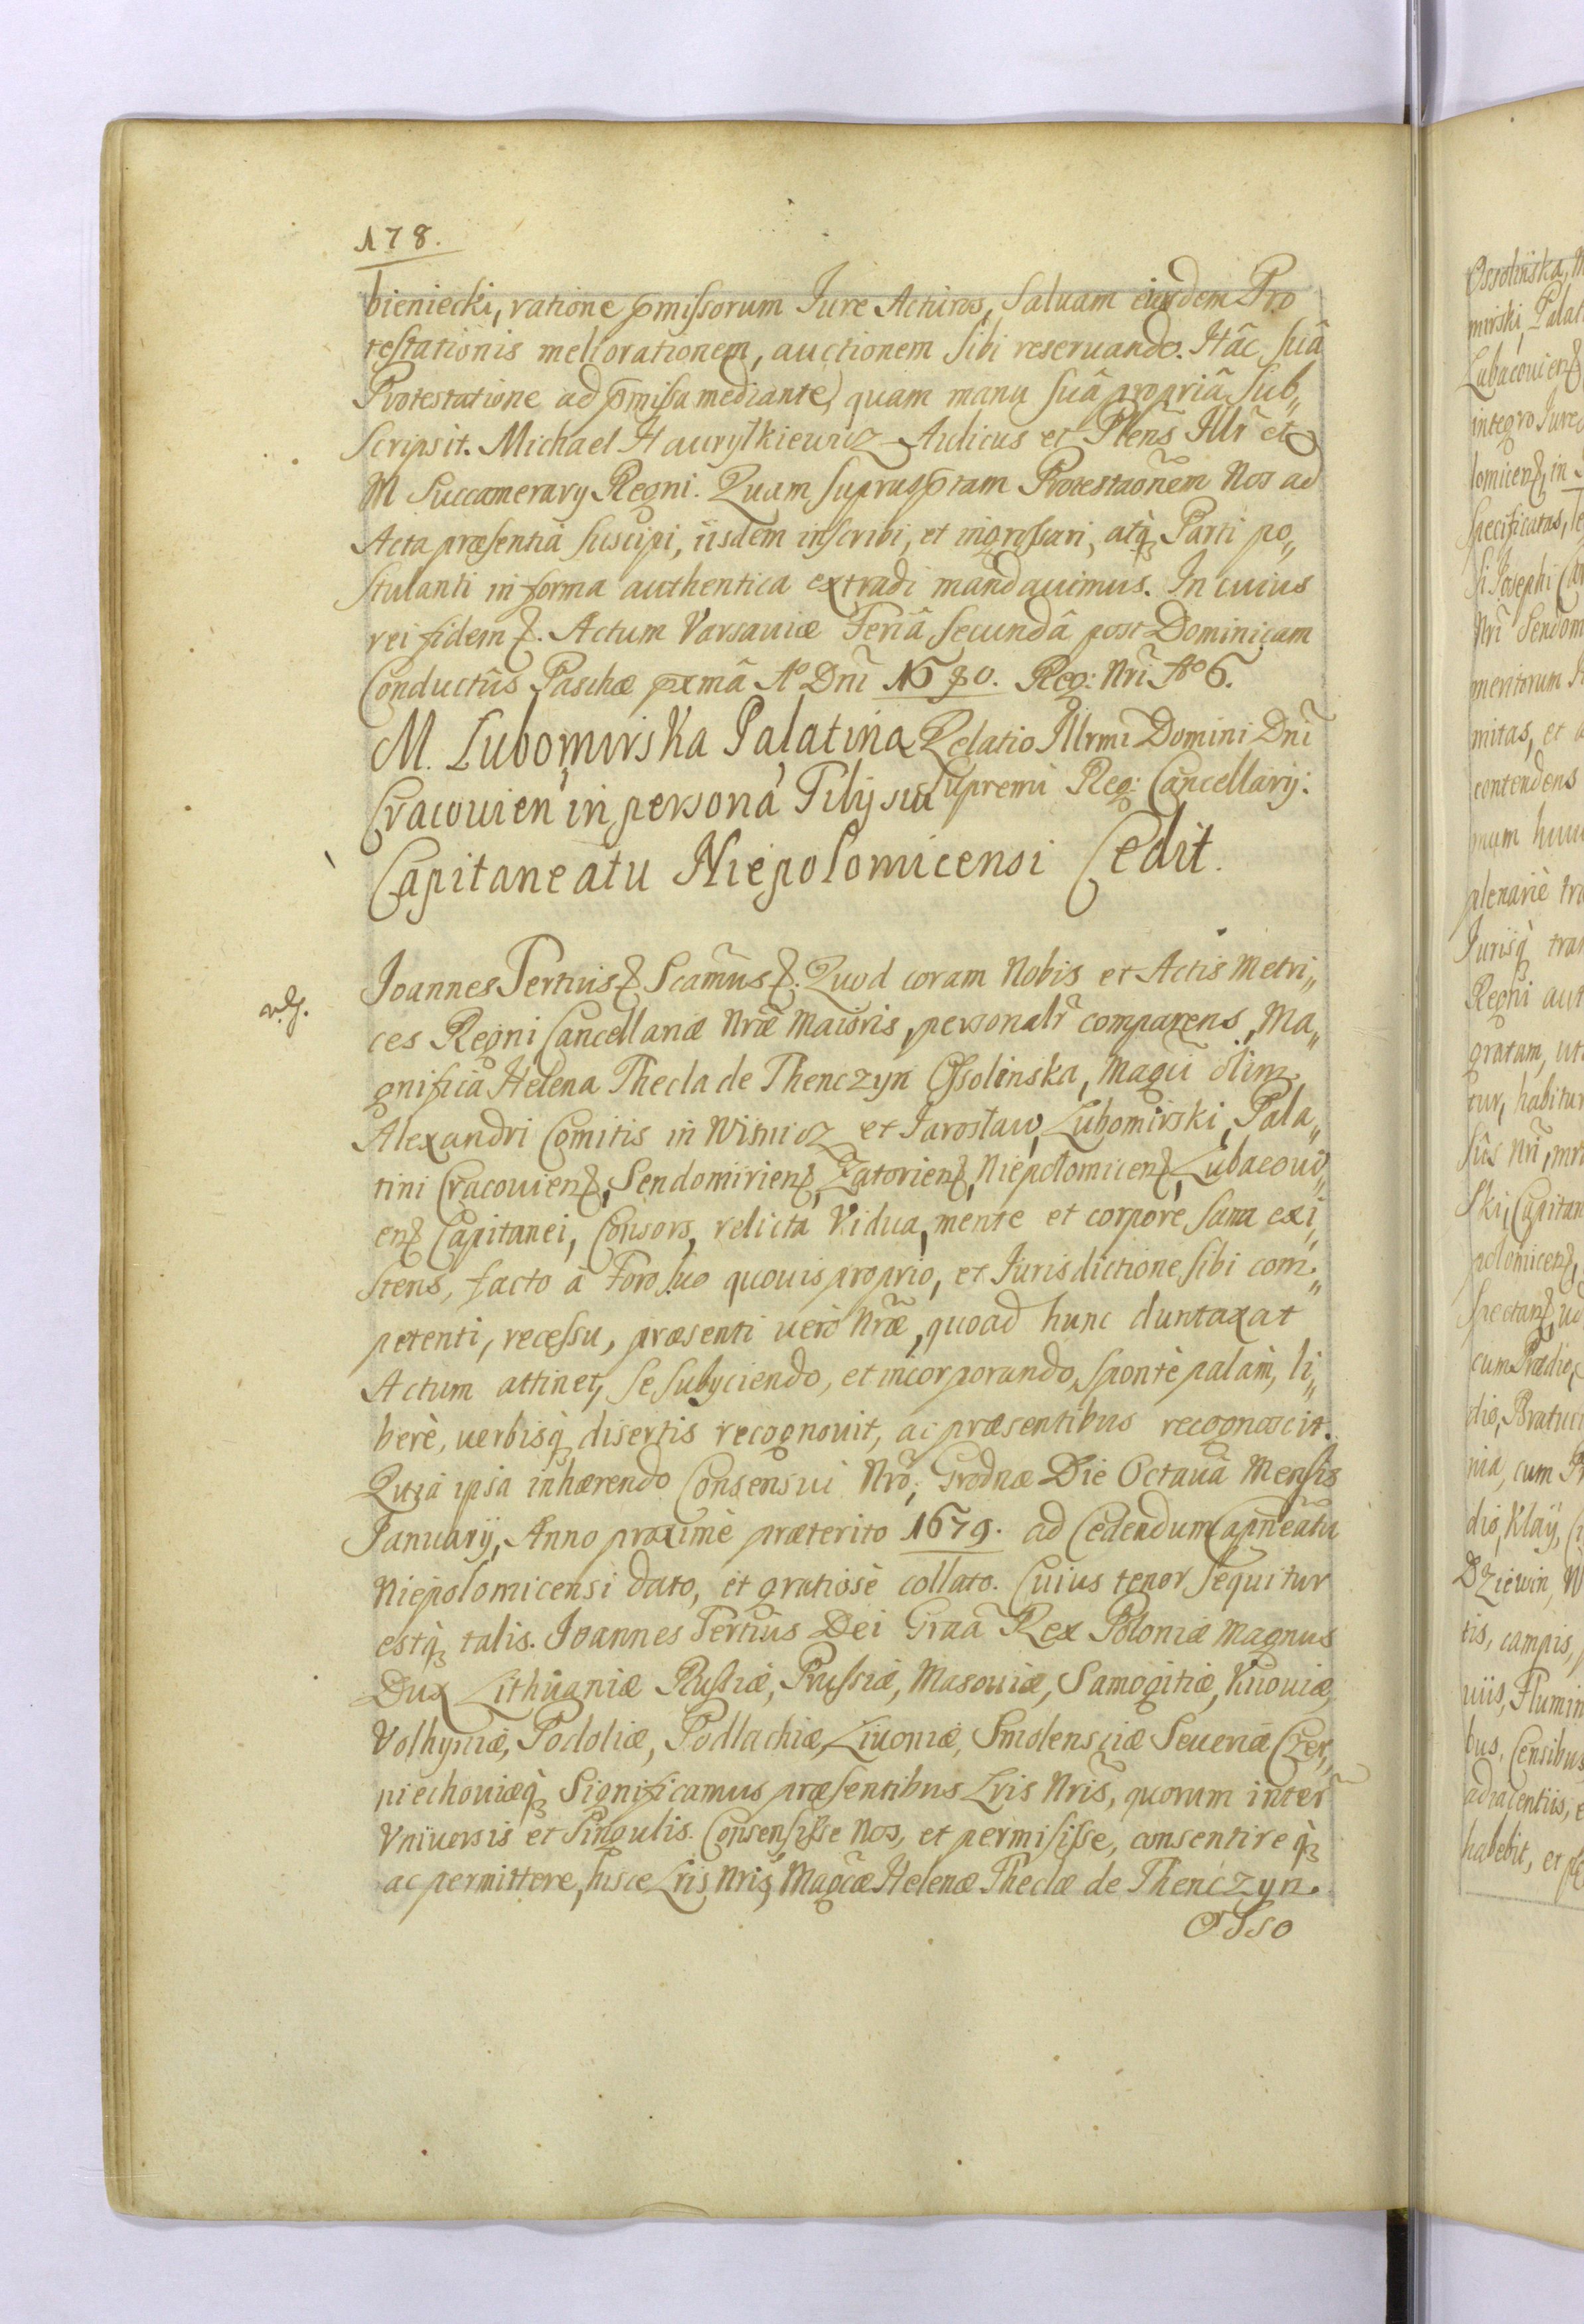 178.
bieniecki, ratione p̄missorum Iure Acturos, Saluam eiusdem Pro
testationis meliorationem, auctionem sibi reseruando. Hâc suâ
Protestatione ad p̄missa mediante, quam manu suâ propriâ sub„
scripsit. Michael Haurylkiewicz Aulicus et Plenс̃ Illr̃ et
M Succamerarij Regni. Quam suprasp̄tam Protestaõnem Nos ad
Acta præsentia suscipi, iisdem inscribi, et ingrossari, atq̨ Parti po„
stulanti in forma authentica extradi mandauimus. In cuius
rei fidem &. Actum Varsauiæ Feriâ Secundâ post Dominicam
Conductûs Paschæ pxmâ Aº Dnĩ 1680. Reg: Nrĩ Aº 6.
M. Lubomirska Palatina Relatio Illrmĩ Domini Dnĩ
Cracouien in persona Filij sui Supremi Reg: Cancellarij:
Capitaneatu Niepolomicensi Cedit.
Joannes Tertius & Scam̃us &. Quod coram Nobis et Actis Metri„
ces Regni Cancellariæ Nræ̃ Maioris, personalr̃ comparens, Ma„
gnifica Helena Thecla de Thenczyn Ossolinska, Magci olim
Alexandri Comitis in Wisnicz et Jaroslaw, Lubomirski, Pala„
tini Cracouien̨, Sendomirien̨, Zatorien̨, Niepolomicen̨, Lubacoui„
en̨ Capitanei, Consors, relicta Vidua, mente et corpore sana exi„
stens, facto à Foro suo quouis proprio, et Jurisdictione sibi com„
petenti, recessu, præsenti uerò Nræ̃, quoad hunc duntaxat
Actum attinet, se subyciendo, et incorporando, sponte palàm, li„
berè, uerbisq̨ disertis recognouit, ac præsentibus recognoscit.
Quia ipsa inhærendo Consensui Nrõ, Grodnæ Die Octauâ Mensis
Januarij, Anno proximè præterito 1679. ad Cedendum Capn̄eatu
Niepolomicensi dato, et gratiosè collato. Cuius tenor sequitur
estq̨ talis. Joannes Tertius Dei Graã Rex Poloniæ Magnus
Dux Lithuaniæ Russiæ, Prussiæ, Masouiæ, Samogitiæ, Kiiouiæ
Volhyniæ, Podoliæ, Podlachiæ, Liuoniæ, Smolensciæ Seueriæ Czer„
niechouiæq̨ Significamus præsentibus Lr̃is Nrĩs, quorum inter̃
Vniuersis et Singulis. Consensisse Nos, et permisisse, consentireq̨
ac permittere, hisce Lr̃is Nrĩs, Magcæ Helenæ Theclæ de Thenczyn.
Osso